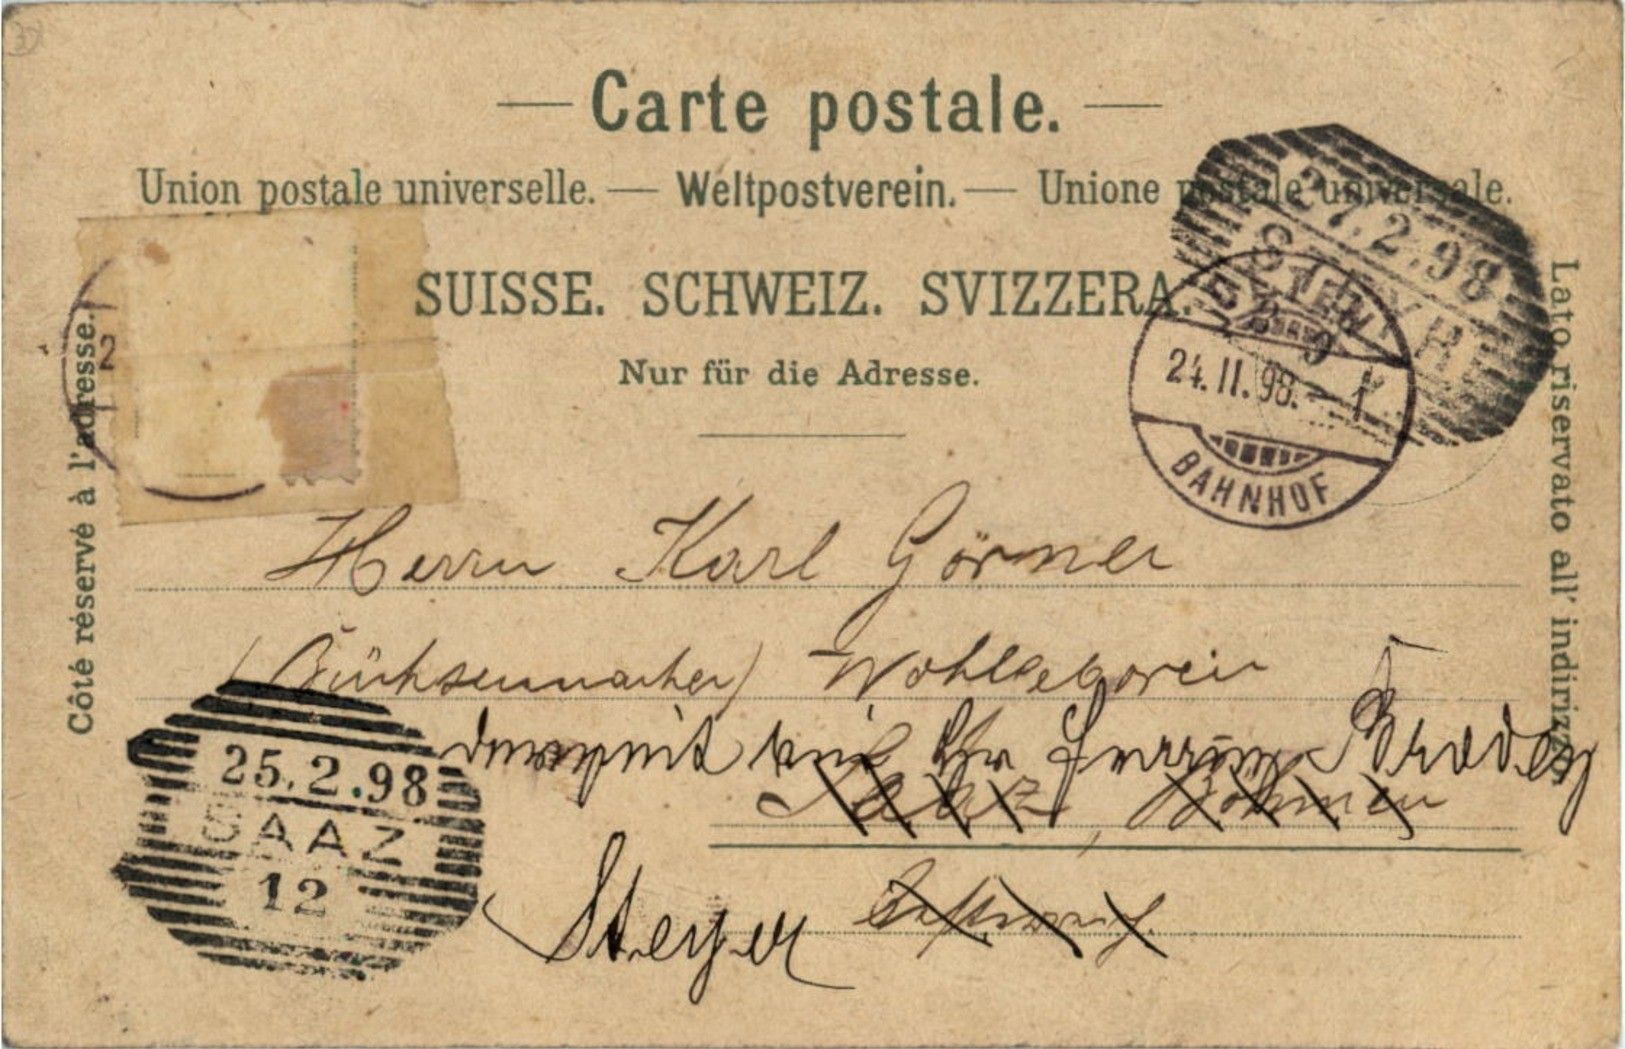 Carte postale.
Union postale universelle. — Weltpostverein. — Unione postale universale.
SUISSE. SCHWEIZ. SVIZZERA.
Nur für die Adresse.
Côté réservé à l'adresse.
Lato riservato all' indirizzo
27.2.98
STEYR
24.II.98.
BAHNHOF
2
Herrn Karl Görner
(Büchsenmacher) Wohlgeboren
derzeit bei Hr Brodey
Saaz, Böhmen
Steyer
25.2.98
SAAZ
12